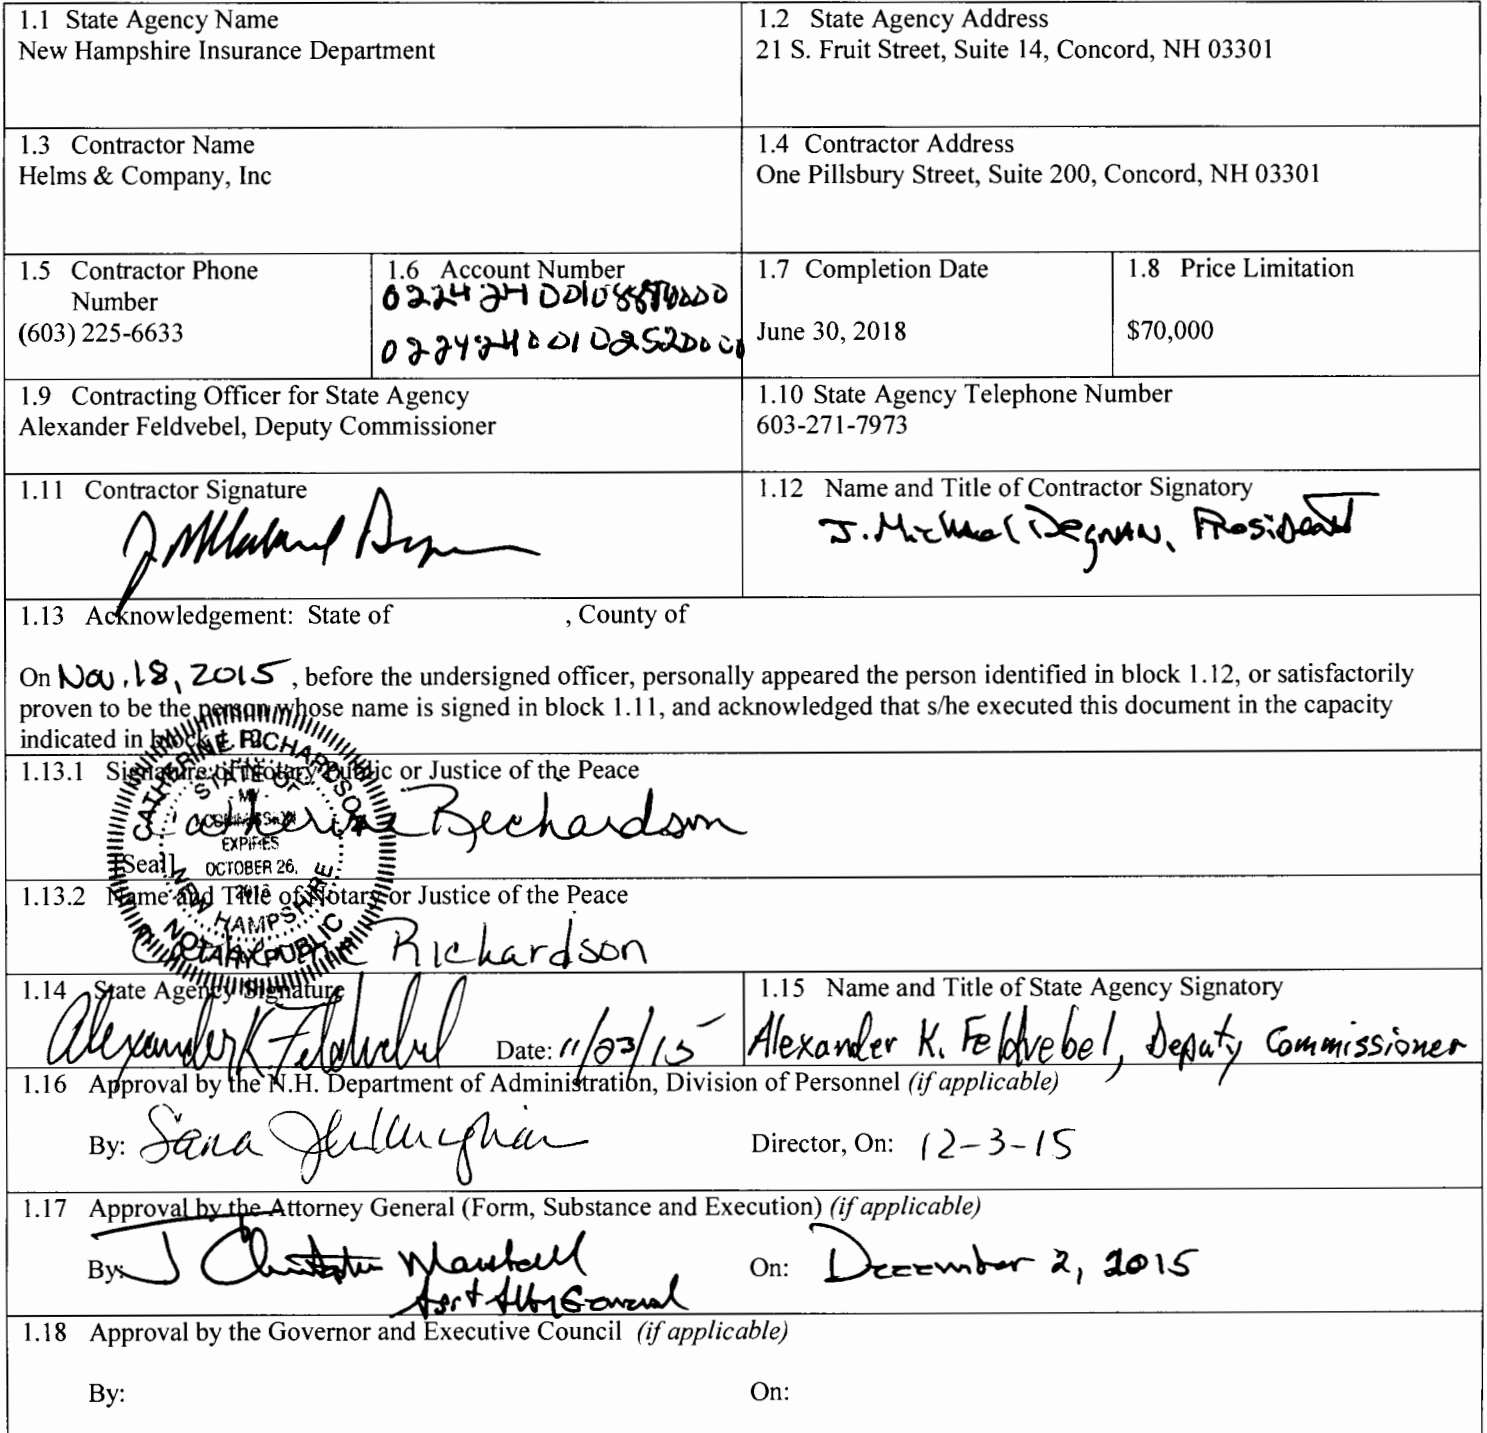 1.1 State Agency Name
New Hampshire Insurance Department
1.2 State Agency Address
21 S. Fruit Street, Suite 14, Concord, NH 03301
1.3 Contractor Name
Helms & Company, Inc
1.4 Contractor Address
One Pillsbury Street, Suite 200, Concord, NH 03301
1.5 Contractor Phone
Number
(603) 225-6633
1.6 Account Number
1.7 Completion Date
June 30, 2018
1.8 Price Limitation
$70,000
1.9 Contracting Officer for State Agency
Alexander Feldvebel, Deputy Commissioner
1.10 State Agency Telephone Number
603-271-7973
1.11 Contractor Signature
1.12 Name and Title of Contractor Signatory
J. Michael Degnan, President
1.13 Acknowledgement: State of , County of
On Nov. 18, 2015, before the undersigned officer, personally appeared the person identified in block 1.12, or satisfactorily
proven to be the person whose name is signed in block 1.11, and acknowledged that s/he executed this document in the capacity
indicated in block 1.12.
1.13.1 Signature of Notary Public or Justice of the Peace
Catherine Richardson
[Seal]
CATHERINE RICHARDSON
STATE OF
MY
COMMISSION
EXPIRES
OCTOBER 26,
NEW HAMPSHIRE
NOTARY PUBLIC
1.13.2 Name and Title of Notary or Justice of the Peace
Catherine Richardson
1.14 State Agency Signature
Alexander K Feldvebel Date: 11/23/15
1.15 Name and Title of State Agency Signatory
Alexander K. Feldvebel, Deputy Commissioner
1.16 Approval by the N.H. Department of Administration, Division of Personnel (if applicable)
By: Sara Director, On: 12-3-15
1.17 Approval by the Attorney General (Form, Substance and Execution) (if applicable)
By: J Christopher Marshall On: December 2, 2015
Asst Atty General
1.18 Approval by the Governor and Executive Council (if applicable)
By: On: